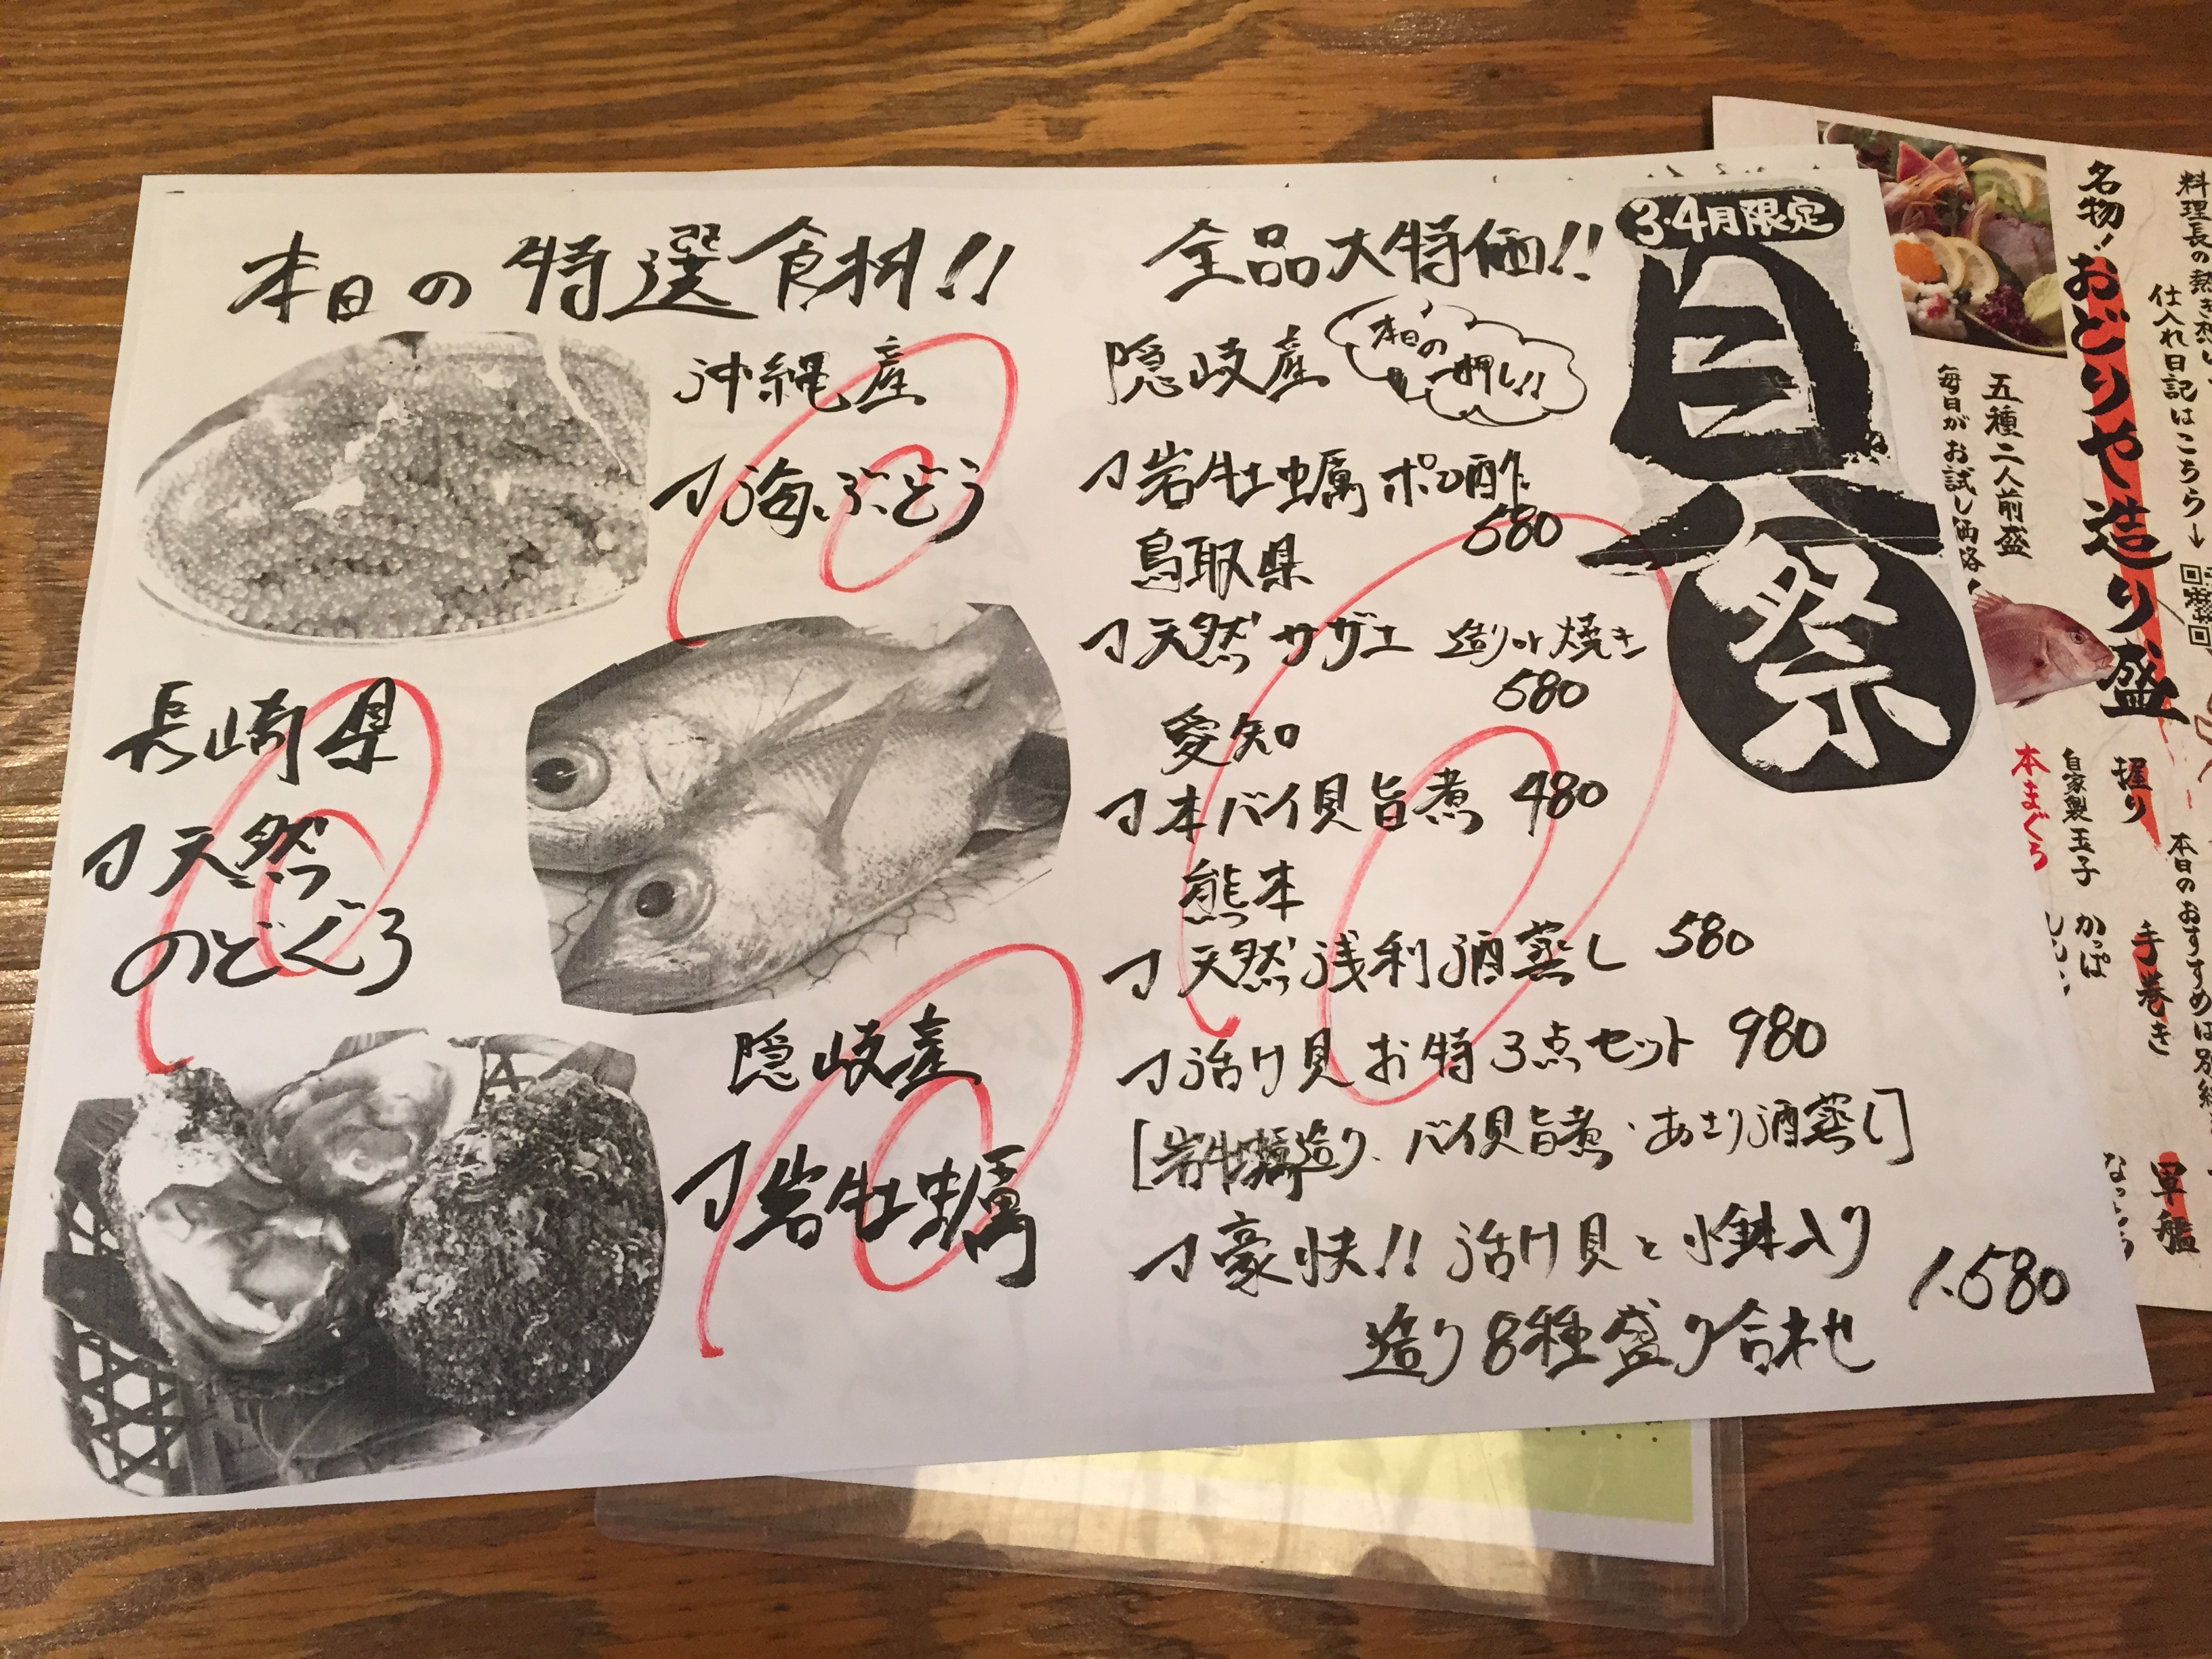 本日の特選食材!!
沖縄産
海ぶどう
長崎県
天然
のどぐろ
隠岐産
岩牡蠣
全品大特価!!
3・4月限定
貝祭
隠岐産
本日の
一押し!!
岩牡蠣ポン酢
580
鳥取県
天然サザエ 造りor焼き
580
愛知
本バイ貝旨煮 480
熊本
天然浅利酒蒸し 580
活け貝お特3点セット 980
[岩牡蠣造り、バイ貝旨煮・あさり酒蒸し]
豪快!! 活け貝と小鉢入り
造り8種盛り合わせ
1.580
料理長の熱き想い
仕入れ日記はこちら→
名物!おどりや造り盛
五種二人前盛
毎日がお試し価格!
握り
自家製玉子
本まぐろ
本日のおすすめは別紙
手巻き
かっぱ
軍艦